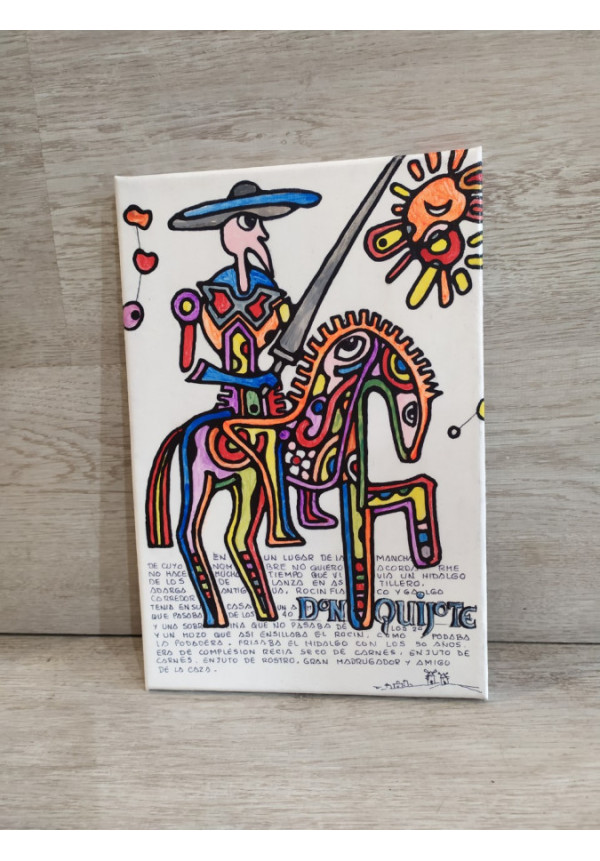 EN UN LUGAR DE LA MANCHA
DE CUYO NOMBRE NO QUIERO ACORDARME
NO HACE MUCHO TIEMPO QUE VIVIA UN HIDALGO
DE LOS DE LANZA EN ASTILLERO.
ADARGA ANTIGUA, ROCIN FLACO Y GALGO
CORREDOR
TENIA EN SU CASA UN A
QUE PASABA DE LOS 40
DON QUIJOTE
Y UNA SOBRINA QUE NO PASABA DE LOS 20
Y UN MOZO QUE ASI ENSILLABA EL ROCIN. COMO PODABA
LA PODADERA. FRISABA EL HIDALGO CON LOS 50 AÑOS.
ERA DE COMPLESION RECIA SECO DE CARNES. ENJUTO DE
CARNES. ENJUTO DE ROSTRO. GRAN MADRUGADOR Y AMIGO
DE LA CAZA.